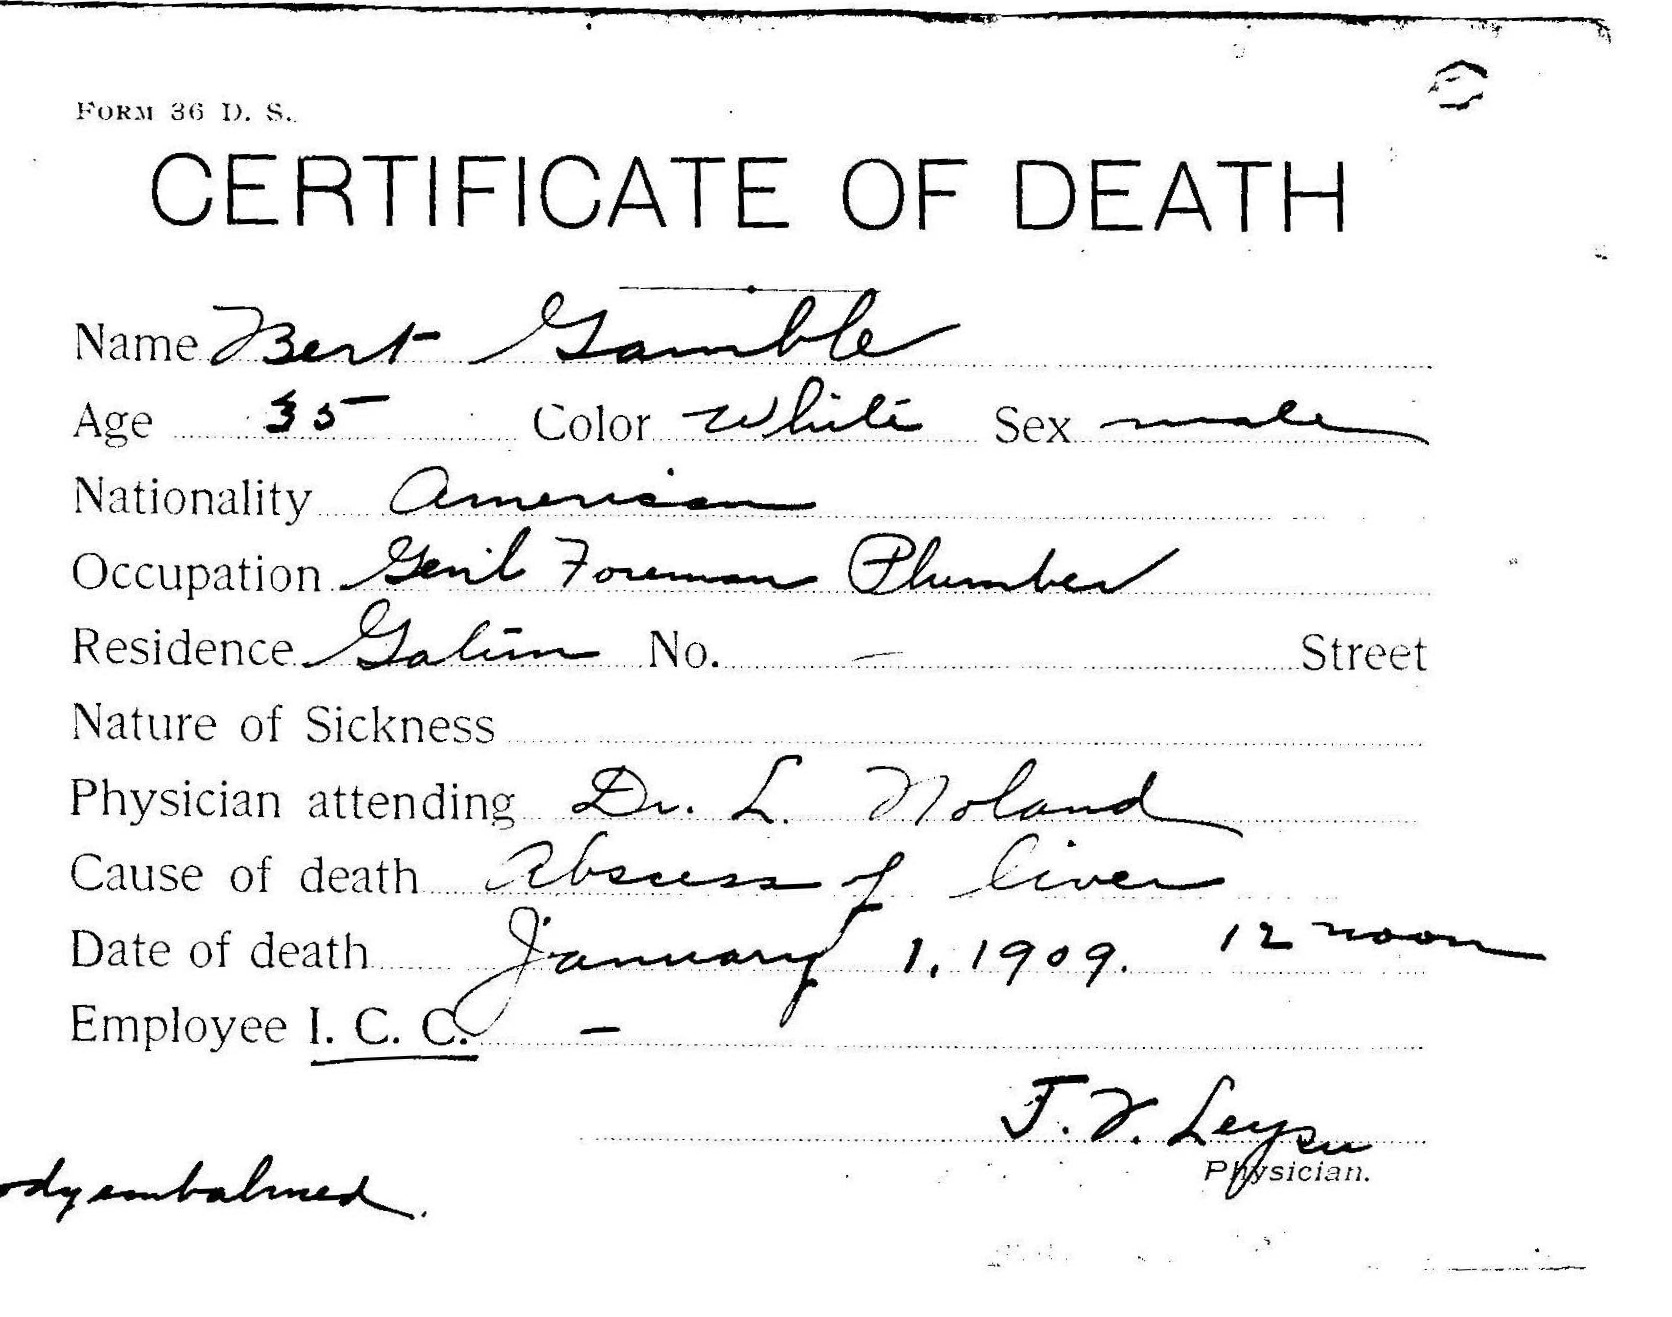 FORM 36 D. S.
CERTIFICATE OF DEATH
Name Bert Gamble
Age 35 Color White Sex male
Nationality American
Occupation Gen'l Foreman Plumber
Residence Gatun No. – Street
Nature of Sickness
Physician attending Dr. L. Noland
Cause of death Abscess of liver
Date of death January 1, 1909. 12 noon
Employee I. C. C. –
Physician.
embalmed.